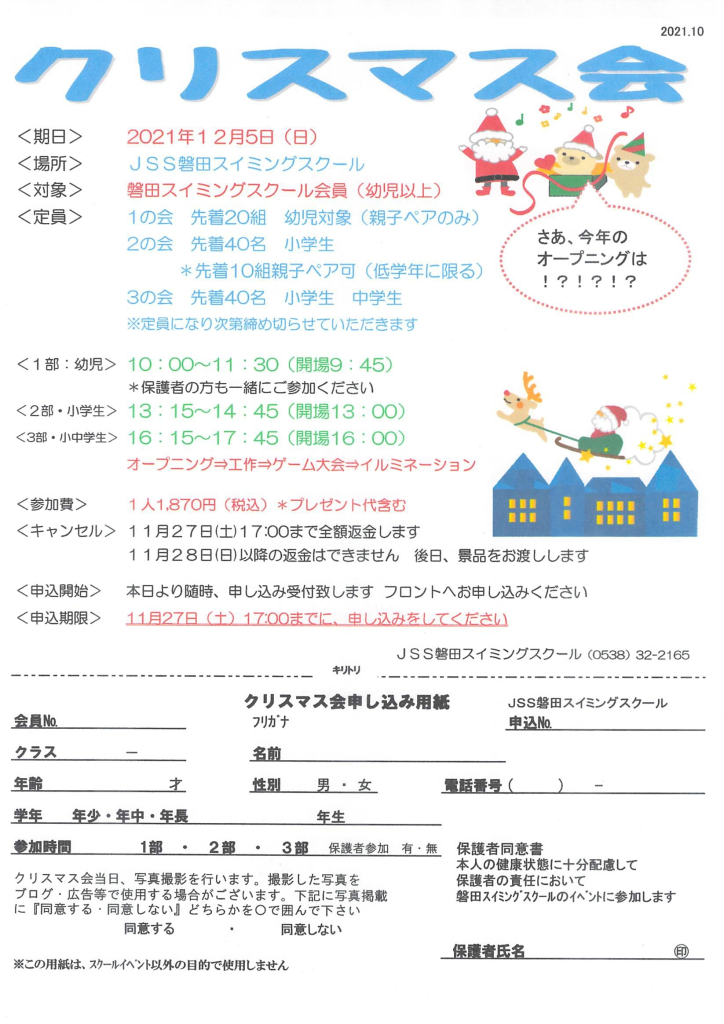 2021.10
クリスマス会
＜期日＞ 2021年12月5日（日）
＜場所＞ JSS磐田スイミングスクール
＜対象＞ 磐田スイミングスクール会員（幼児以上）
＜定員＞ 1の会 先着20組 幼児対象（親子ペアのみ）
2の会 先着40名 小学生
＊先着10組親子ペア可（低学年に限る）
3の会 先着40名 小学生 中学生
※定員になり次第締め切らせていただきます
さあ、今年の
オープニングは
！？！？！？
＜1部：幼児＞ 10：00～11：30（開場9：45）
＊保護者の方も一緒にご参加ください
＜2部・小学生＞ 13：15～14：45（開場13：00）
＜3部・小中学生＞ 16：15～17：45（開場16：00）
オープニング⇒工作⇒ゲーム大会⇒イルミネーション
＜参加費＞ 1人1,870円（税込）＊プレゼント代含む
＜キャンセル＞ 11月27日(土)17:00まで全額返金します
11月28日(日)以降の返金はできません 後日、景品をお渡しします
＜申込開始＞ 本日より随時、申し込み受付致します フロントへお申し込みください
＜申込期限＞ 11月27日（土）17:00までに、申し込みをしてください
JSS磐田スイミングスクール（0538）32-2165
キリトリ
クリスマス会申し込み用紙 JSS磐田スイミングスクール
会員№ ﾌﾘｶﾞﾅ 申込№
クラス － 名前
年齢 才 性別 男 ・ 女 電話番号（ ） －
学年 年少・年中・年長 年生
参加時間 1部 ・ 2部 ・ 3部 保護者参加 有・無
保護者同意書
本人の健康状態に十分配慮して
保護者の責任において
磐田ｽｲﾐﾝｸﾞｽｸｰﾙのｲﾍﾞﾝﾄに参加します
クリスマス会当日、写真撮影を行います。撮影した写真を
ブログ・広告等で使用する場合がございます。下記に写真掲載
に『同意する・同意しない』どちらかを〇で囲んで下さい
同意する ・ 同意しない
保護者氏名 ㊞
※この用紙は、ｽｸｰﾙｲﾍﾞﾝﾄ以外の目的で使用しません